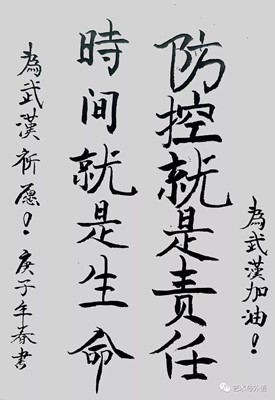 為武漢加油！
防控就是责任
時间就是生命
為武漢祈愿！庚子年春書
艺术与外语